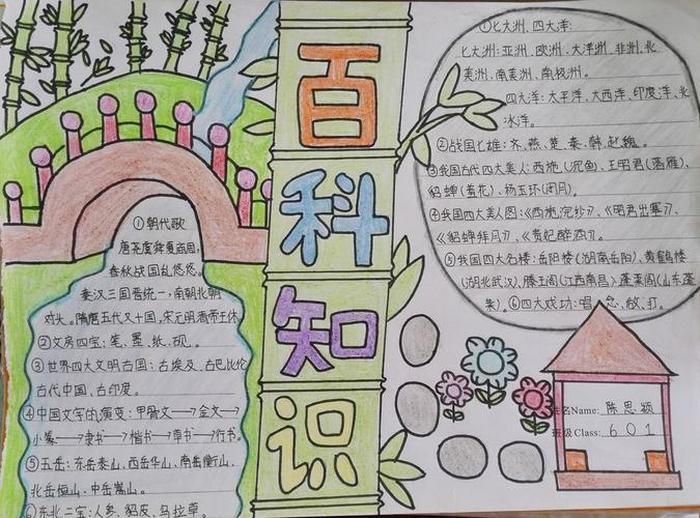 百科知识
①朝代歌
唐尧虞舜夏商周,
春秋战国乱悠悠。
秦汉三国晋统一,南朝北朝
对头。隋唐五代又十国,宋元明清帝王休
②文房四宝:笔、墨、纸、砚。
③世界四大文明古国:古埃及、古巴比伦
古代中国、古印度。
④中国文字的演变:甲骨文→金文→
小篆→隶书→楷书→草书→行书。
⑤五岳:东岳泰山、西岳华山、南岳衡山、
北岳恒山、中岳嵩山。
⑥东北三宝:人参、貂皮、乌拉草。
①七大洲、四大洋:
七大洲:亚洲、欧洲、大洋洲、非洲、北
美洲、南美洲、南极洲。
四大洋:太平洋、大西洋、印度洋、北
冰洋。
②战国七雄:齐、燕、楚、秦、韩、赵、魏。
③我国古代四大美人:西施(沉鱼)、王昭君(落雁)、
貂蝉(羞花)、杨玉环(闭月)。
④我国四大美人图:《西施浣纱》、《昭君出塞》、
《貂蝉拜月》、《贵妃醉酒》。
⑤我国四大名楼:岳阳楼(湖南岳阳)、黄鹤楼
(湖北武汉)、滕王阁(江西南昌)、蓬莱阁(山东蓬
莱)。⑥四大戏功:唱、念、做、打。
姓名Name: 陈思颖
班级Class: 601